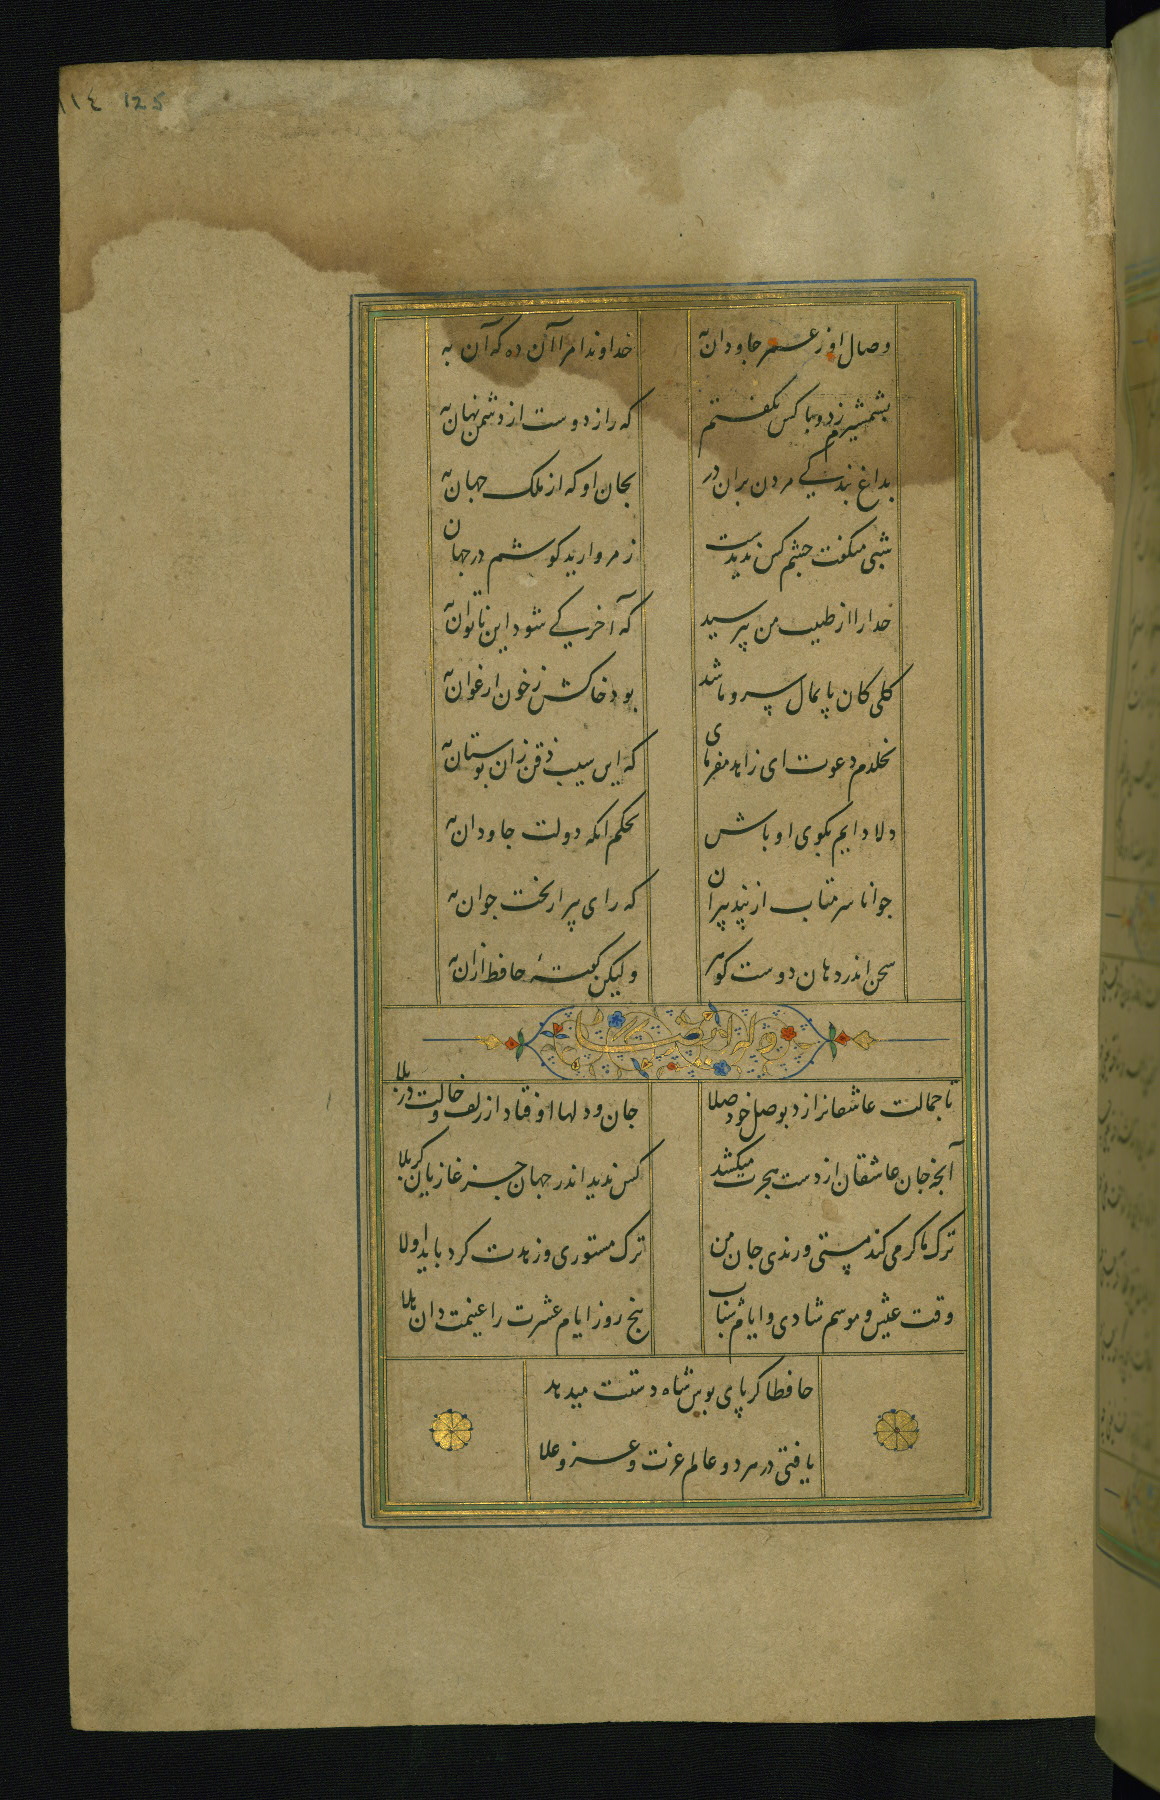 ١١٤ 125
وصال او ز عمر جاودان به
خداوندا مرا آن ده که آن به
بشمشیرم زد و با کس نگفتم
که راز دوست از دشمن نهان به
بداغ بندگی مردن بران در
بجان او که از ملک جهان به
شبی میگفت چشم کس ندیدست
ز مروارید گوشم در جهان
خدارا از طبیب من بپرسید
که آخر کی شود این ناتوان به
گلی کان پایمال سرو ما شد
بود خاکش ز خون ارغوان به
بخلدم دعوت ای زاهد مفرمای
که این سیب ذقن زان بوستان به
دلا دایم بکوی او باش
بحکم آنکه دولت جاودان به
جوانا سر متاب از پند پیران
که رای پیر از بخت جوان به
سخن اندر دهان دوست گوهر
ولیکن گفتهٔ حافظ ازان به
وله ایضا
تا جمالت عاشقانرا زد بوصل خود صلا
جان و دلها اوفتاد از زلف و خالت در بلا
آنچه جان عاشقان از دست هجرت میکشد
کس ندید اندر جهان جز غازیان کربلا
ترک ما گر می کند مستی و رندی جان من
ترک مستوری و زهدت کرد باید اولا
وقت عیش و موسم شادی و ایام شباب
پنج روز ایام عشرت را غنیمت دان هلا
حافظا گر پای بوس شاه دستت میدهد
یافتی در هر دو عالم عزت و عز و علا